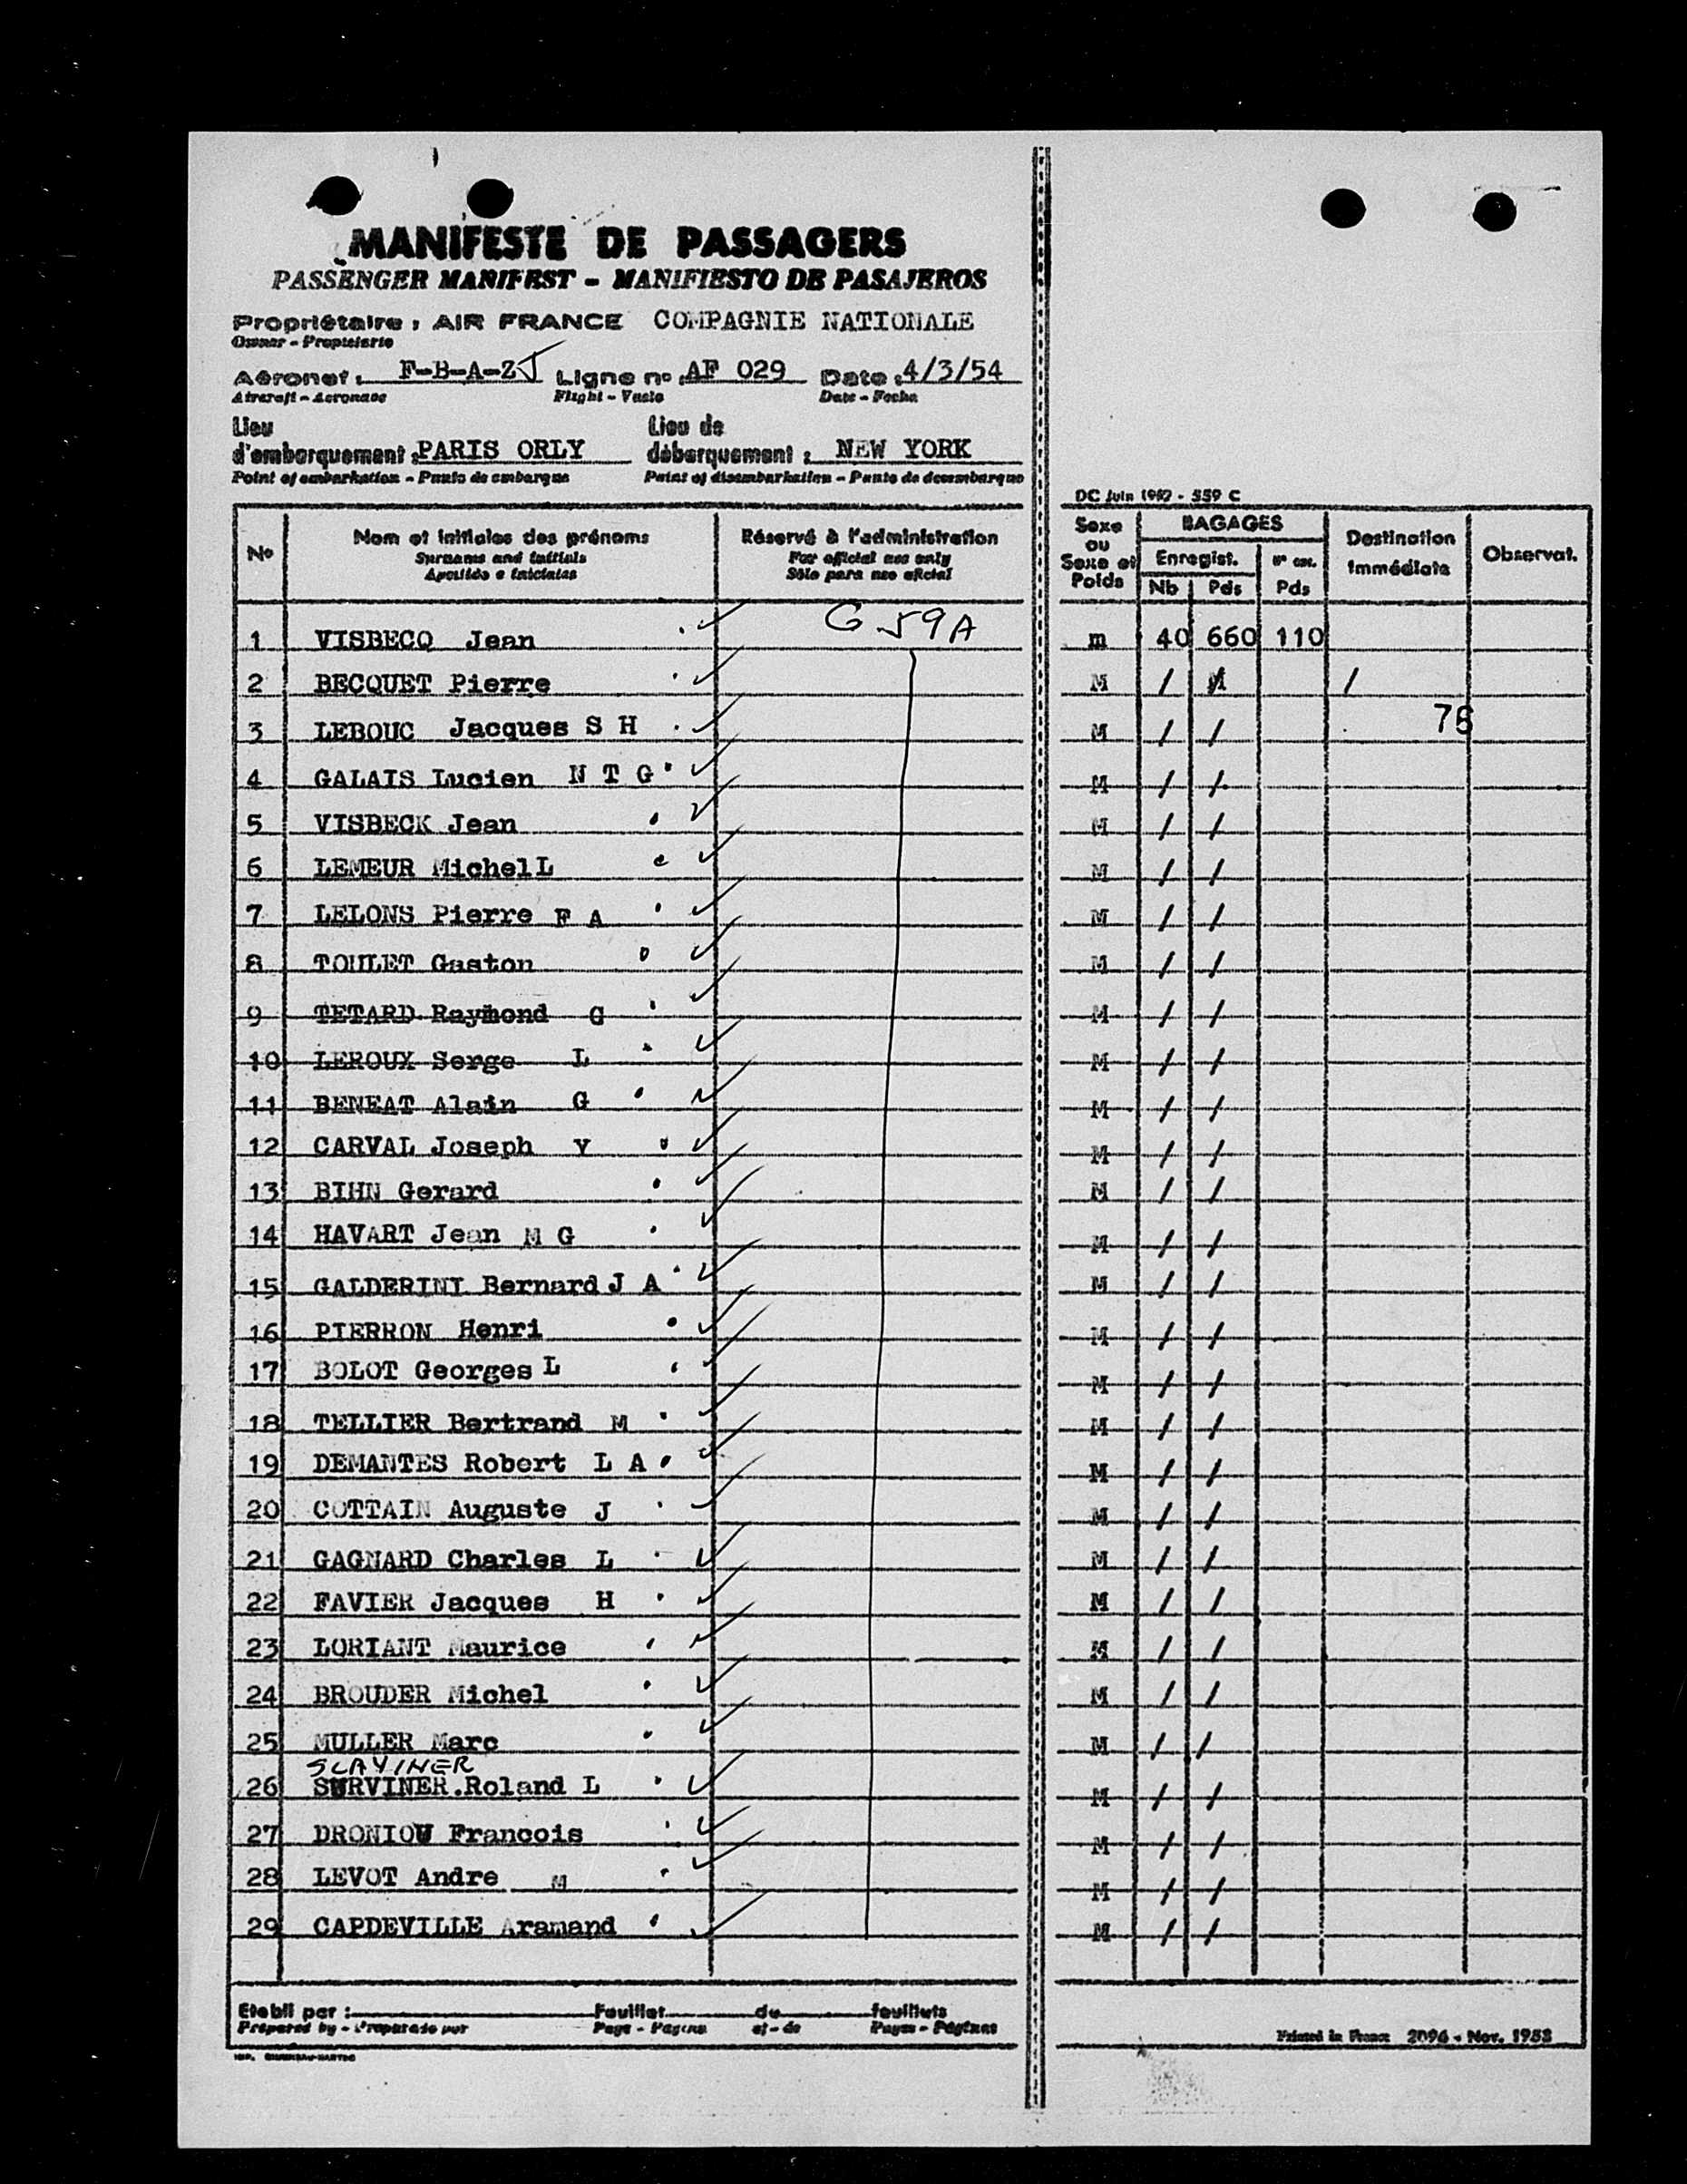 MANIFESTE DE PASSAGERS
PASSENGER MANIFEST - MANIFIESTO DE PASAJEROS
Propriétaire : AIR FRANCE COMPAGNIE NATIONALE
Owner - Propietario
Aéronef : F-B-A-Z J Ligne no : AF 029 Date : 4/3/54
Aircraft - Aeronave Flight - Vuelo Date - Fecha
Lieu d'embarquement : PARIS ORLY Lieu de débarquement : NEW YORK
Point of embarkation - Punto de embarque Point of disembarkation - Punto de desembarque
DC Juin 1952 - 559 C
No Nom et initiales des prénoms Réservé à l'administration Sexe ou Sexe et Poids BAGAGES Destination immédiate Observat.
Surname and initials For official use only Enregist.
Apellido e iniciales Sólo para uso oficial Nb Pds Pds
1 VISBECQ Jean G 59A m 40 660 110
2 BECQUET Pierre M / / /
3 LEBOUC Jacques S H M / / 75
4 GALAIS Lucien N T G M / /
5 VISBECK Jean M / /
6 LEMEUR Michel L M / /
7 LELONS Pierre F A M / /
8 TOULET Gaston M / /
9 TETARD Raymond G M / /
10 LEROUX Serge L M / /
11 BENEAT Alain G M / /
12 CARVAL Joseph Y M / /
13 BIHN Gerard M / /
14 HAVART Jean M G M / /
15 GALDERINI Bernard J A M / /
16 PIERRON Henri M / /
17 BOLOT Georges L M / /
18 TELLIER Bertrand M M / /
19 DEMANTES Robert L A M / /
20 COTTAIN Auguste J M / /
21 GAGNARD Charles L M / /
22 FAVIER Jacques H M / /
23 LORIANT Maurice M / /
24 BROUDER Michel M / /
25 MULLER Marc M / /
SLAYINER
26 SURVINER.Roland L M / /
27 DRONIOU Francois M / /
28 LEVOT Andre M M / /
29 CAPDEVILLE Aramand M / /
Etabli par : Feuillet du feuillets
Prepared by - Preparado por Page - Página of - de Pages - Páginas
Printed in France 2096 - Nov. 1953